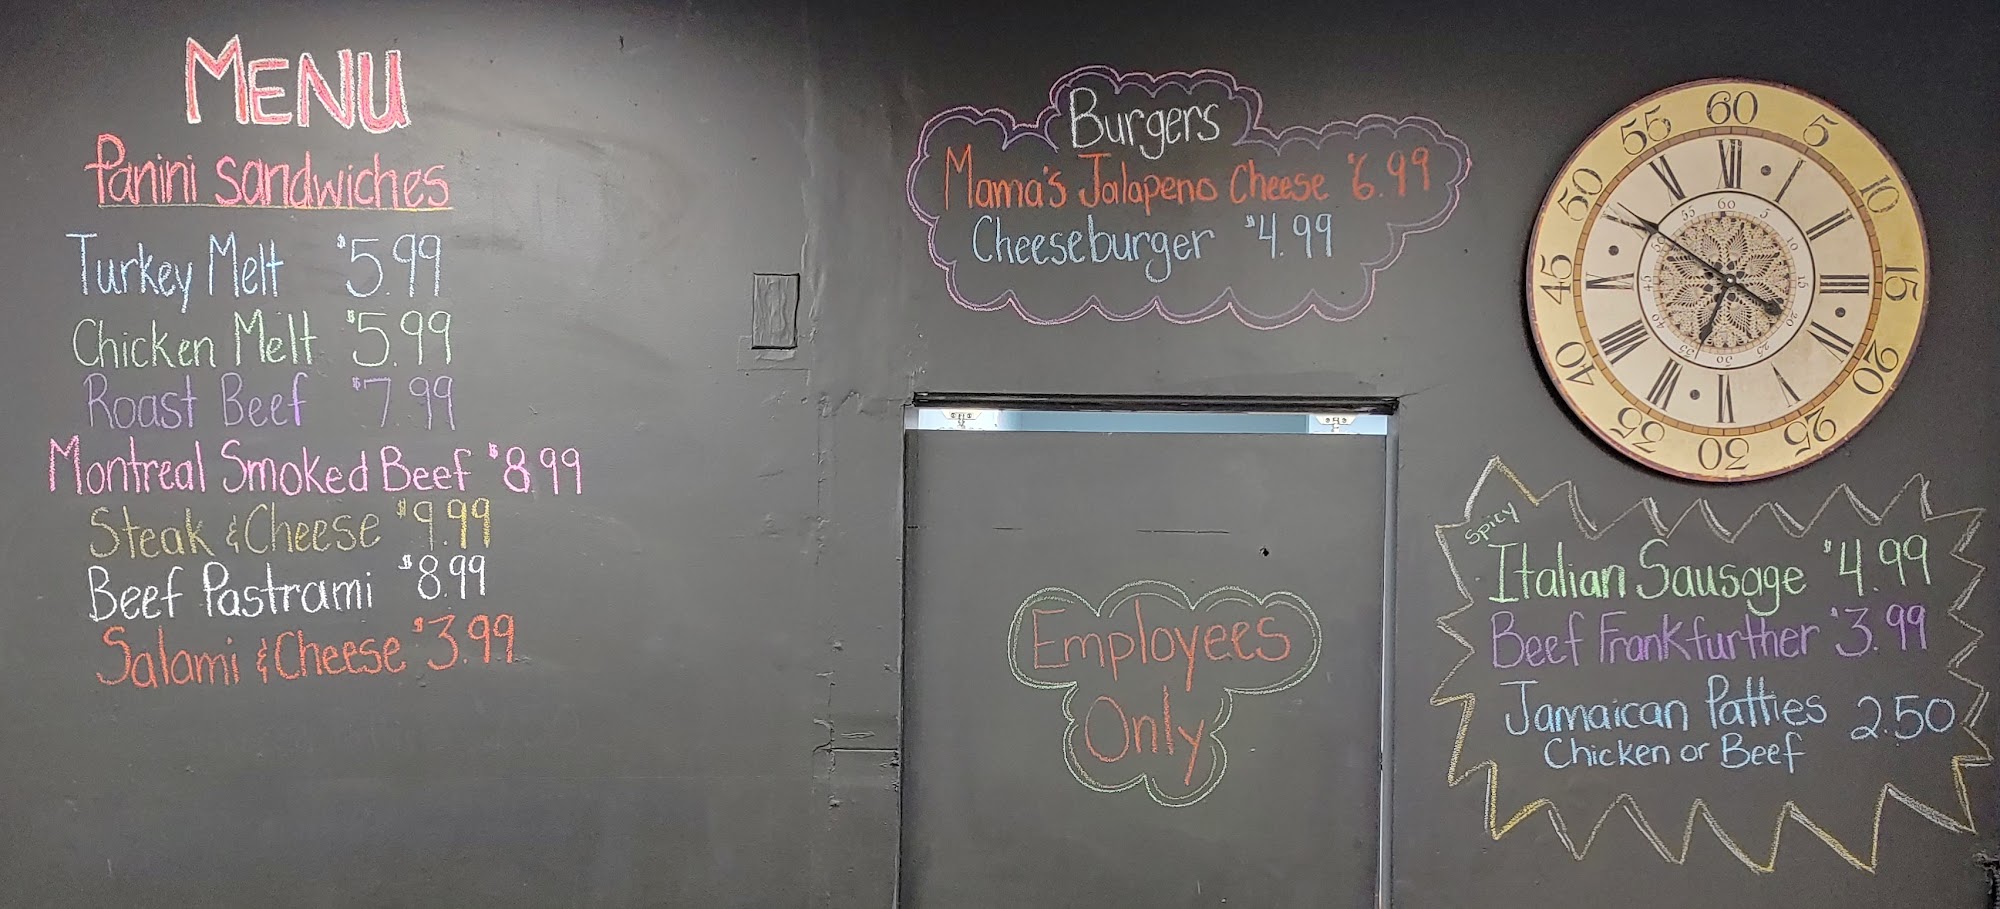 MENU
Panini Sandwiches
Turkey Melt $5.99
Chicken Melt $5.99
Roast Beef $7.99
Montreal Smoked Beef $8.99
Steak & Cheese $9.99
Beef Pastrami $8.99
Salami & Cheese $3.99
Burgers
Mama's Jalapeno Cheese $6.99
Cheeseburger $4.99
Employees
Only
60 5 10 15 20 25 30 35 40 45 50 55
XII I II III IIII V VI VII VIII IX X XI
60 5 10 15 20 25 30 35 40 45 50 55
Spicy
Italian Sausage $4.99
Beef Frankfurther $3.99
Jamaican Patties 2.50
Chicken or Beef